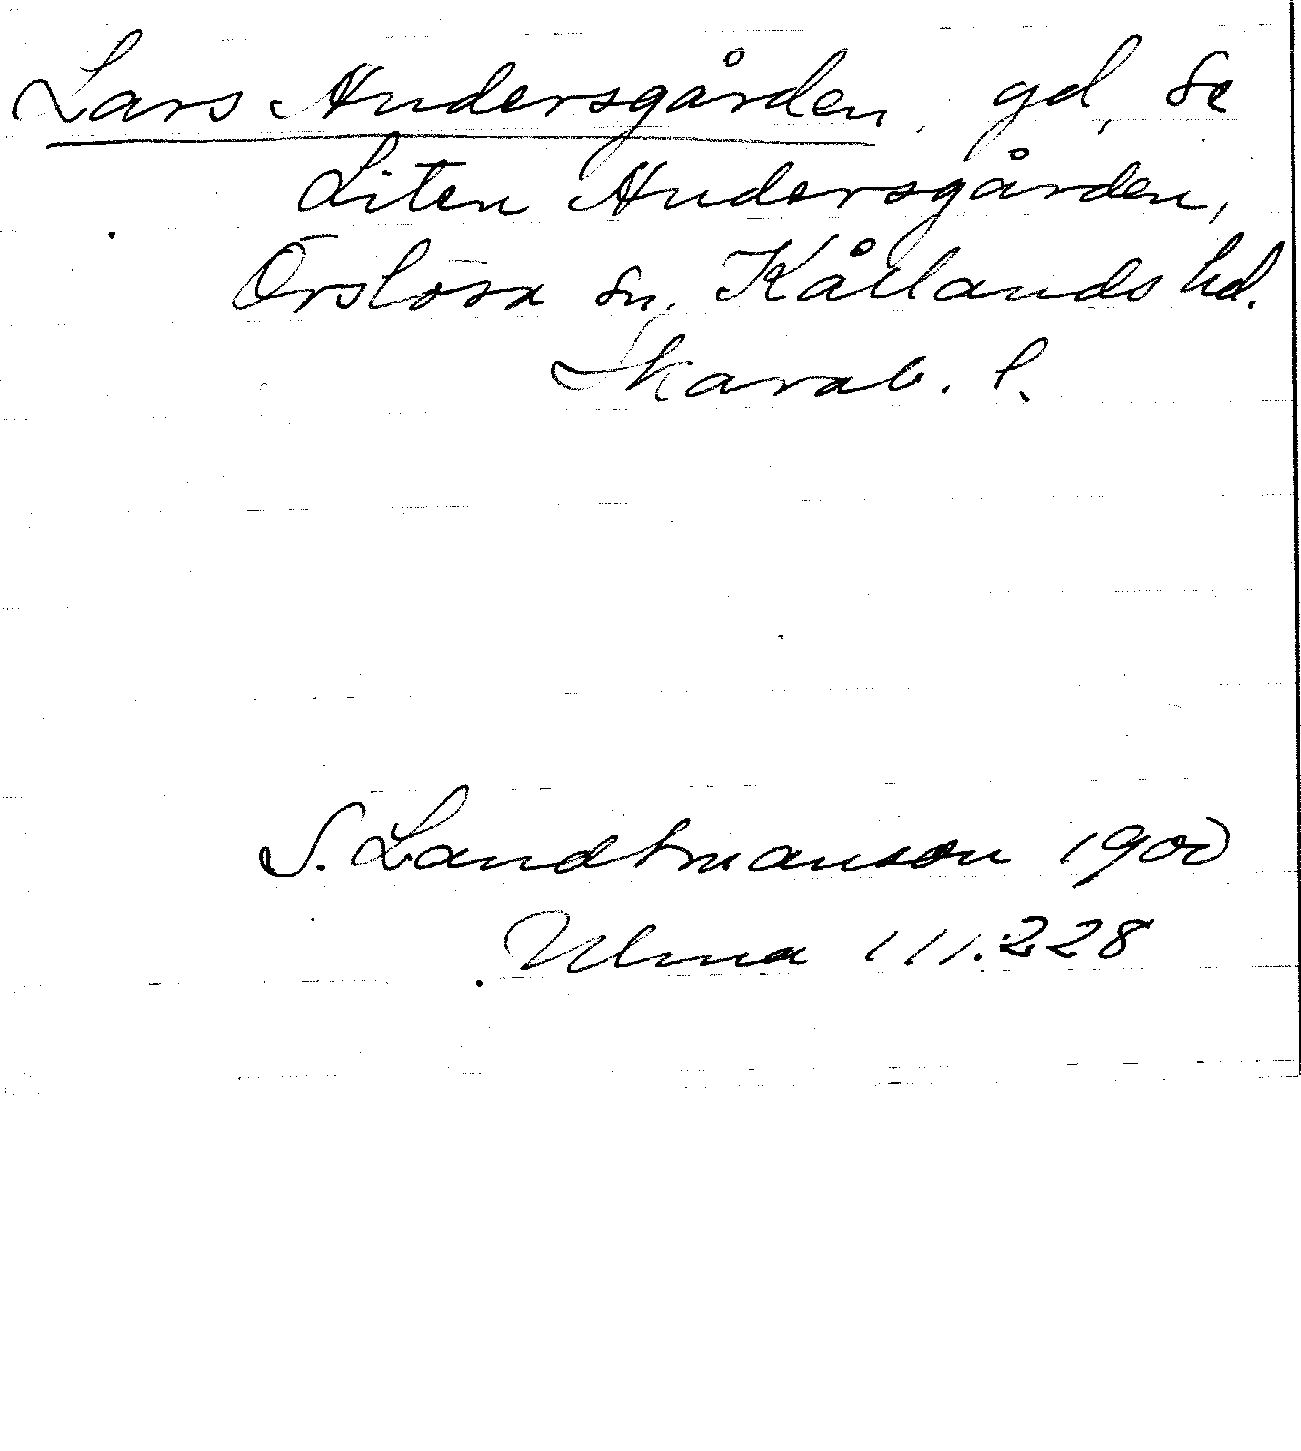 Lars Andersgården, gd, se
Liten Andersgården,
Örslösa sn, Kållands hd.
Skarab. l.
S. Landtmanson 1900
Ulma 111.228